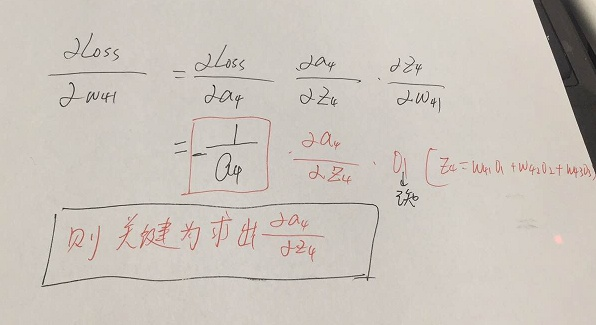 ∂Loss/∂w41 = ∂Loss/∂a4 ∂a4/∂z4 · ∂z4/∂w41
= -1/a4 · ∂a4/∂z4 · O1 [z4=w41O1+w42O2+w43O3
↓
已知
则关键为求出 ∂a4/∂z4